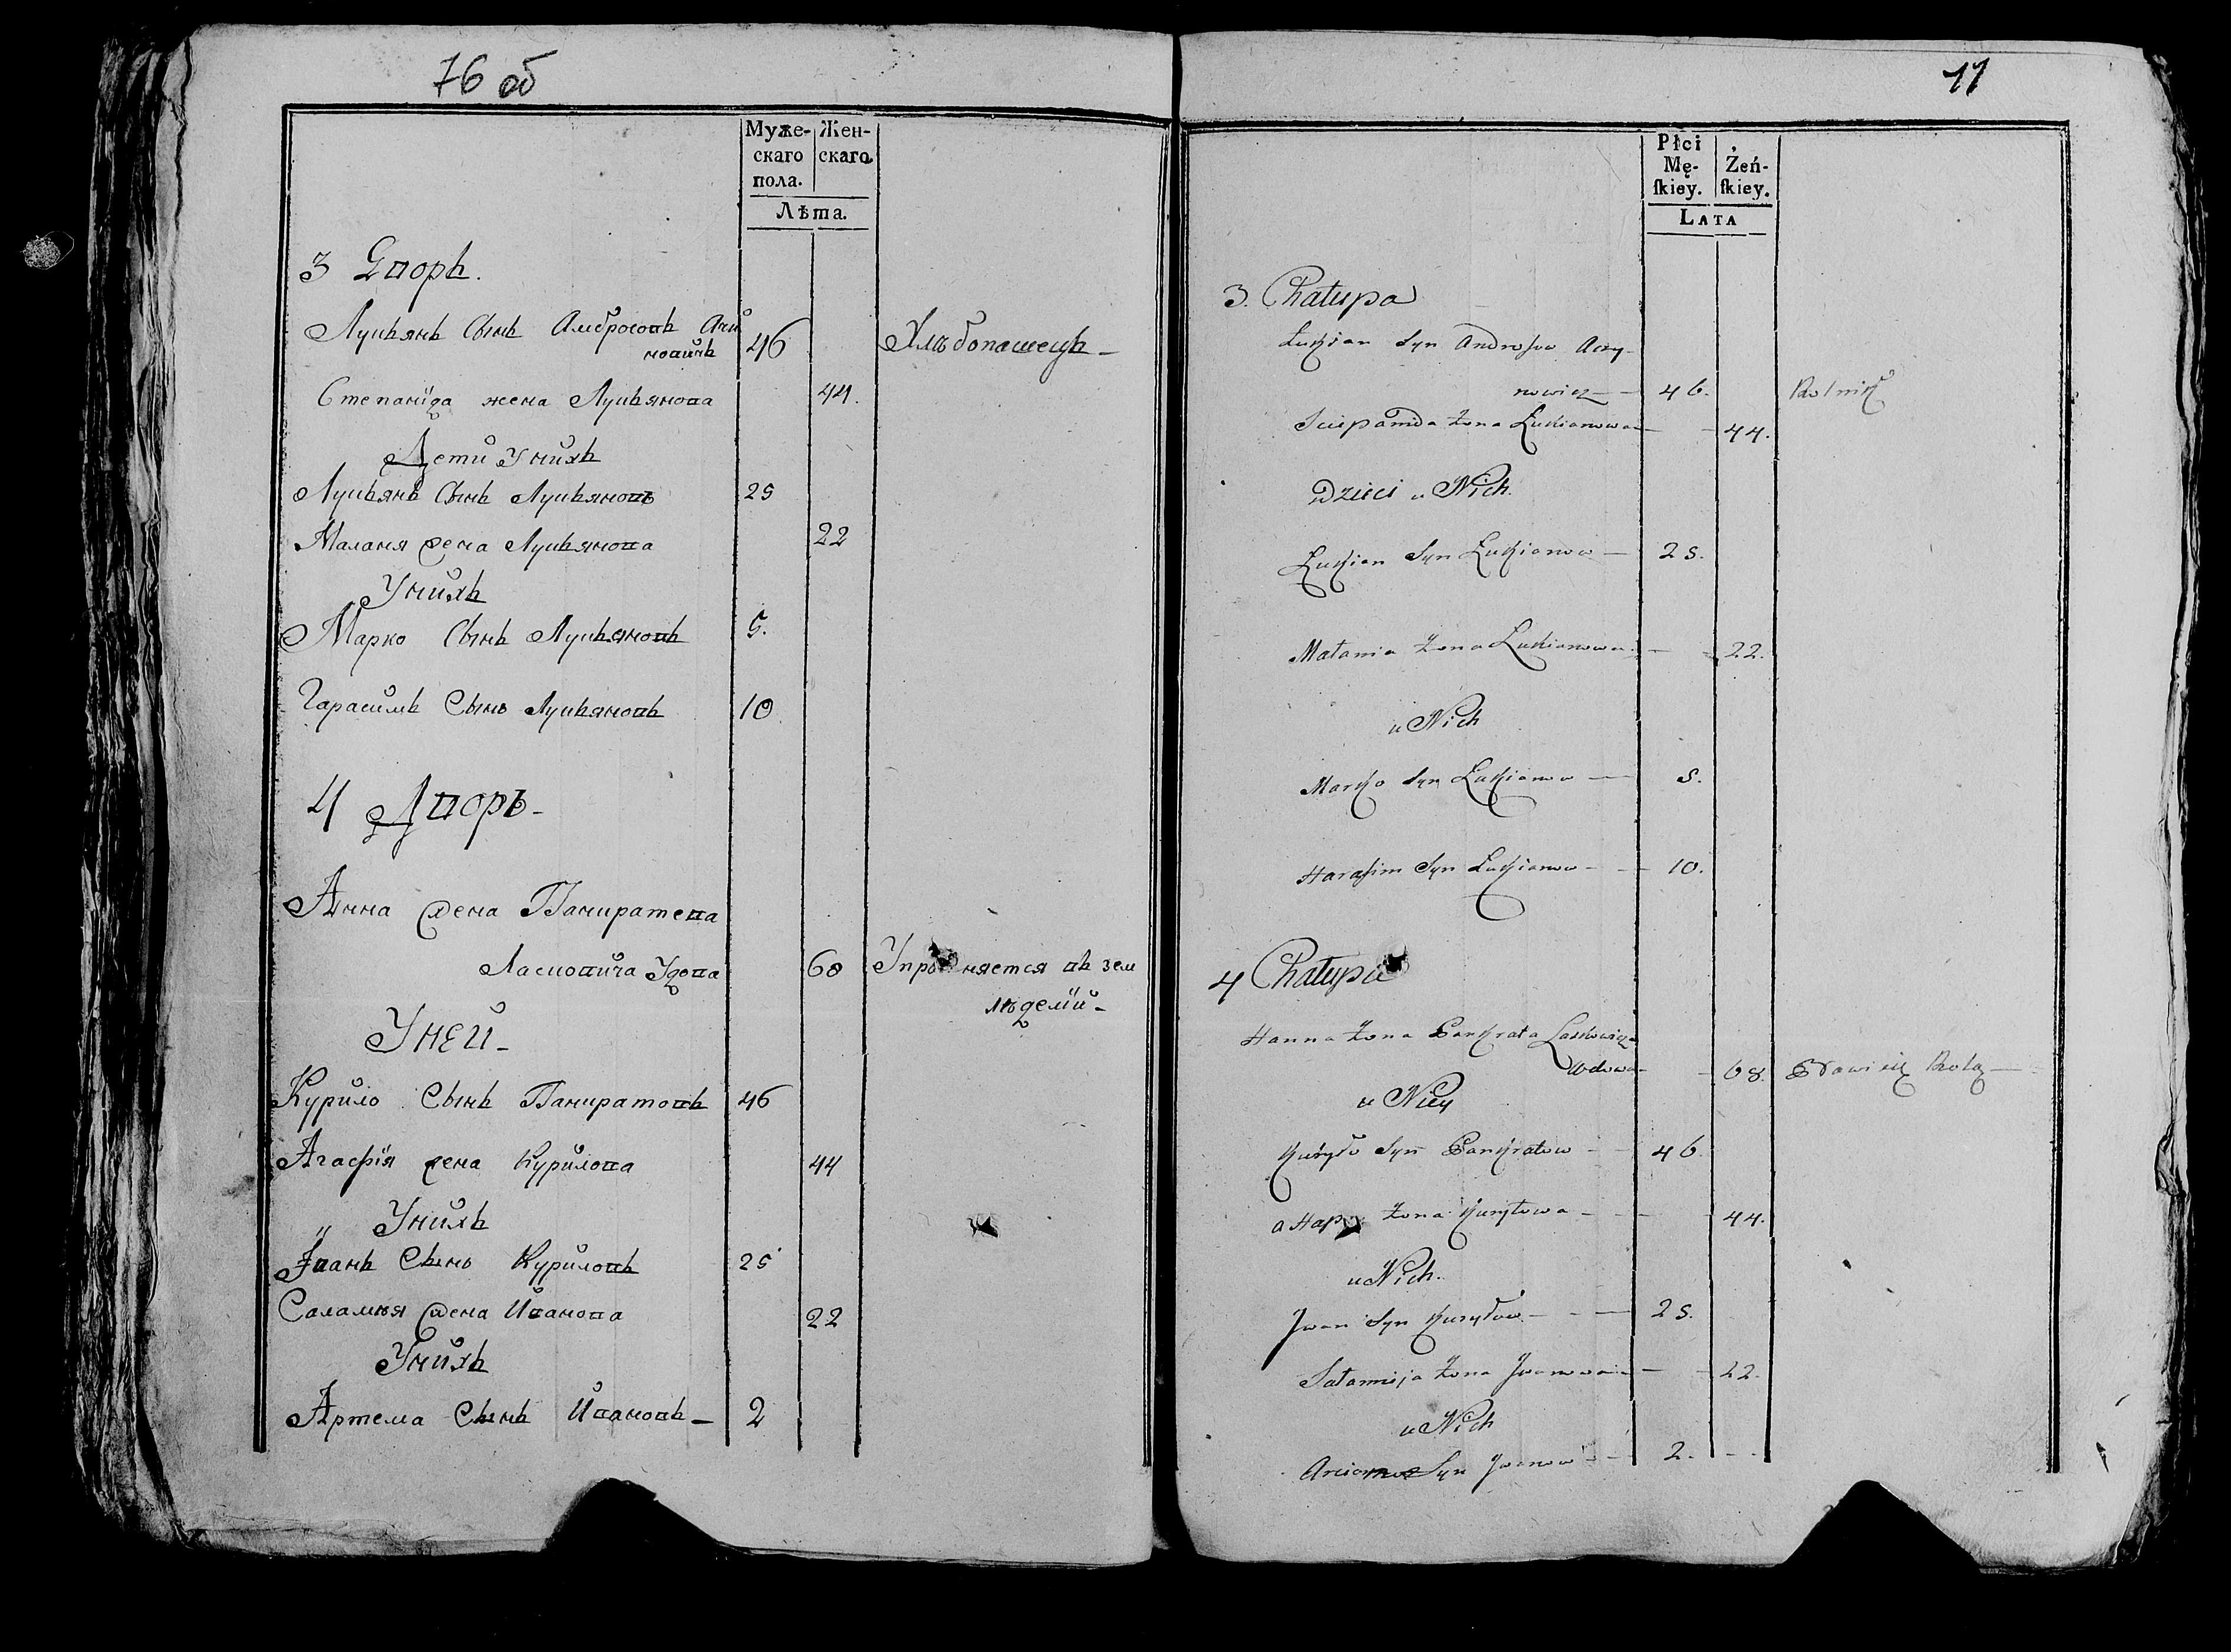 76 об
Муже- Жен-
скаго скаго
пола.
Лѣта.
3 Дворъ.
Лукьянъ Сынъ Амбросовъ Ачи
новичъ 46 Хлѣбопашецъ –
Степанида жена Лукьянова 44.
Дети Унихъ
Лукьянъ Сынъ Лукьяновъ 25
Маланя жена Лукьянова 22
Унихъ
Марко Сынъ Лукьяновъ 5.
Гарасимъ Сынъ Лукьяновъ 10
4 Дворъ –
Анна жена Панкратева
Ласковича Удова 68 Упражняется въ зем
лѣделии –
Уней –
Курило Сынъ Панкратовъ 46
Агафія жена Курилова 44
Унихъ
Іванъ Сынъ Куриловъ 25
Саламѣя жена Иванова 22
Унихъ
Артема Сынъ Ивановъ – 2
77
Płci
Mę- Żeń-
ſkiey. ſkiey.
LATA
3. Chałupa
Łukjan Syn Androsow Aczy-
nowicz – 46. Rolnik
Sciepanida Żona Łukianowa – 44.
Dzieci u Nich.
Łukjan Syn Łukjanow – 25.
Małania Żona Łukianowa – 22.
u Nich
Marko Syn Łukjanow – 5.
Harasim Syn Łukjanow – 10.
4 Chałupa
Hanna Żona Pankrata Laskowicza
Wdowa – 68. Bawi się Rolą –
u Niey
Kuryło Syn Pankratow – 46.
Żona Kuryłowa – 44.
u Nich.
Jwan Syn Kuryłow – 25.
Sałamieja Żona Jwanowa – 22.
u Nich
Arciom Syn Jwanow – 2.